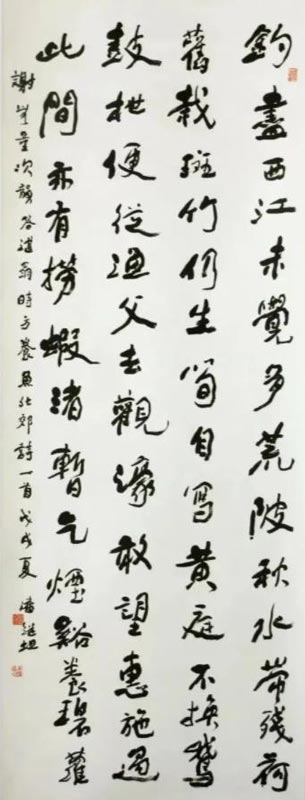 鈞盡西江未覺多荒陂秋水帶殘荷
舊栽斑竹仍生筍自寫黃庭不換鵞
鼓枻便從漁父去觀濠敢望惠施過
此間亦有撈蝦渚暫乞煙谿養碧蘿
謝量次韻答翁時方養魚北郊詩一首戊戌夏潘